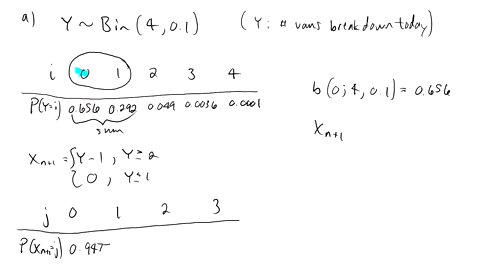 a) Y ~ Bin(4, 0.1) (Y: # vans breakdown today)
i 0 1 2 3 4
P(Y=i) 0.656 0.292 0.049 0.0036 0.0001
sum
b(0; 4, 0.1) = 0.656
X_{n+1}
X_{n+1} = { Y-1, Y≥2
{ 0, Y≤1
j 0 1 2 3
P(X_{n+1}=j) 0.947